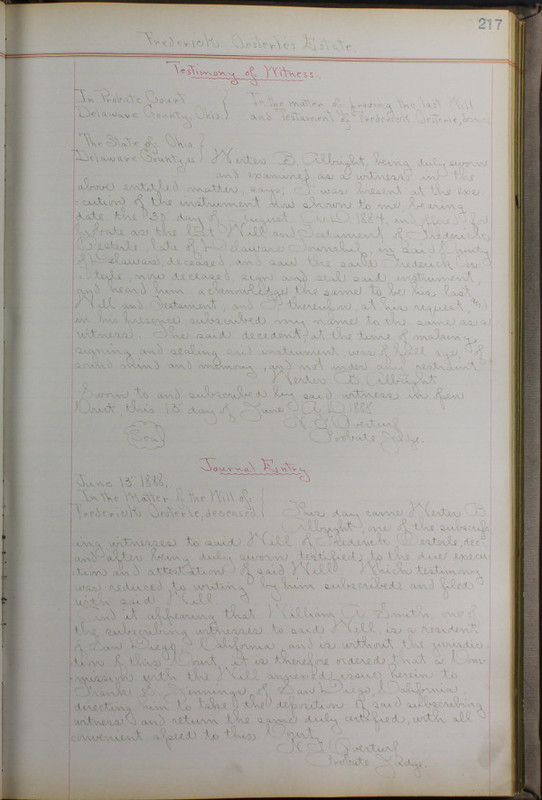 217
Frederick Oesterles Estate.
Testimony of Witness
In Probate Court } In the matter of proving the last Will
Delaware County, Ohio. } and Testament of Frederick Oesterle,
The State of Ohio }
Delaware County, ss } Werter B. Albright, being duly sworn
and examined as a witness in the
above entitled matter, says; I was present at the exe
cution of the instrument now shown to me bearing
date the day of August A.D. 1884, and filed for
Probate as the last Will and Testament of Frederick
Oesterle, late of Delaware Township, in said County
of Delaware, deceased, and saw the said Frederick Oe
sterle, now deceased, sign and seal said instrument,
and heard him acknowledge the same to be his last
Will and Testament, and I thereupon, at his request,
in his presence, subscribed my name to the same as a
witness. The said decedent at the time of making,
signing and sealing said instrument, was of full age, of
sound mind and memory, and not under any restraint
Werter B. Albright
Sworn to and subscribed by said witness in open
Court this 13 day of June A.D. 1888
N. F. Overturf
(Seal) Probate Judge.
Journal Entry
June 13 1888.
In the Matter of the Will of }
Frederick Oesterle, deceased } This day came Werter B
Albright one of the subscrib
ing witnesses to said Will of Frederick Oesterle, dec
and after being duly sworn testified to the due execu
tion and attestation of said Will. Which testimony
was reduced to writing by him subscribed and filed
with said Will.
And it appearing that William A. Smith one of
the subscribing witnesses to said Will, is a resident
of San Diego California and is without the jurisdic
tion of this Court, it is therefore ordered that a Com
mission with the Will annexed issue herein to
Frank Jennings, of San Diego, California
directing him to take the deposition of said subscribing
witness and return the same duly certified, with all
convenient speed to this Court.
N. F. Overturf
Probate Judge.